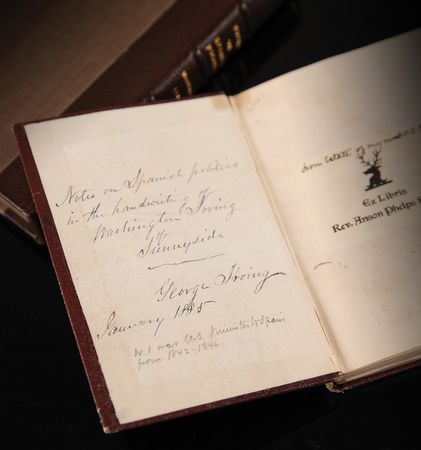 Notes on Spanish politics
in the handwriting of
Washington Irving
of
Sunnyside
George Irving
January 1885
W. I was U.S. Minister to Spain
from 1842-1846.
from Estate of my
Ex Libris
Rev. Anson Phelps